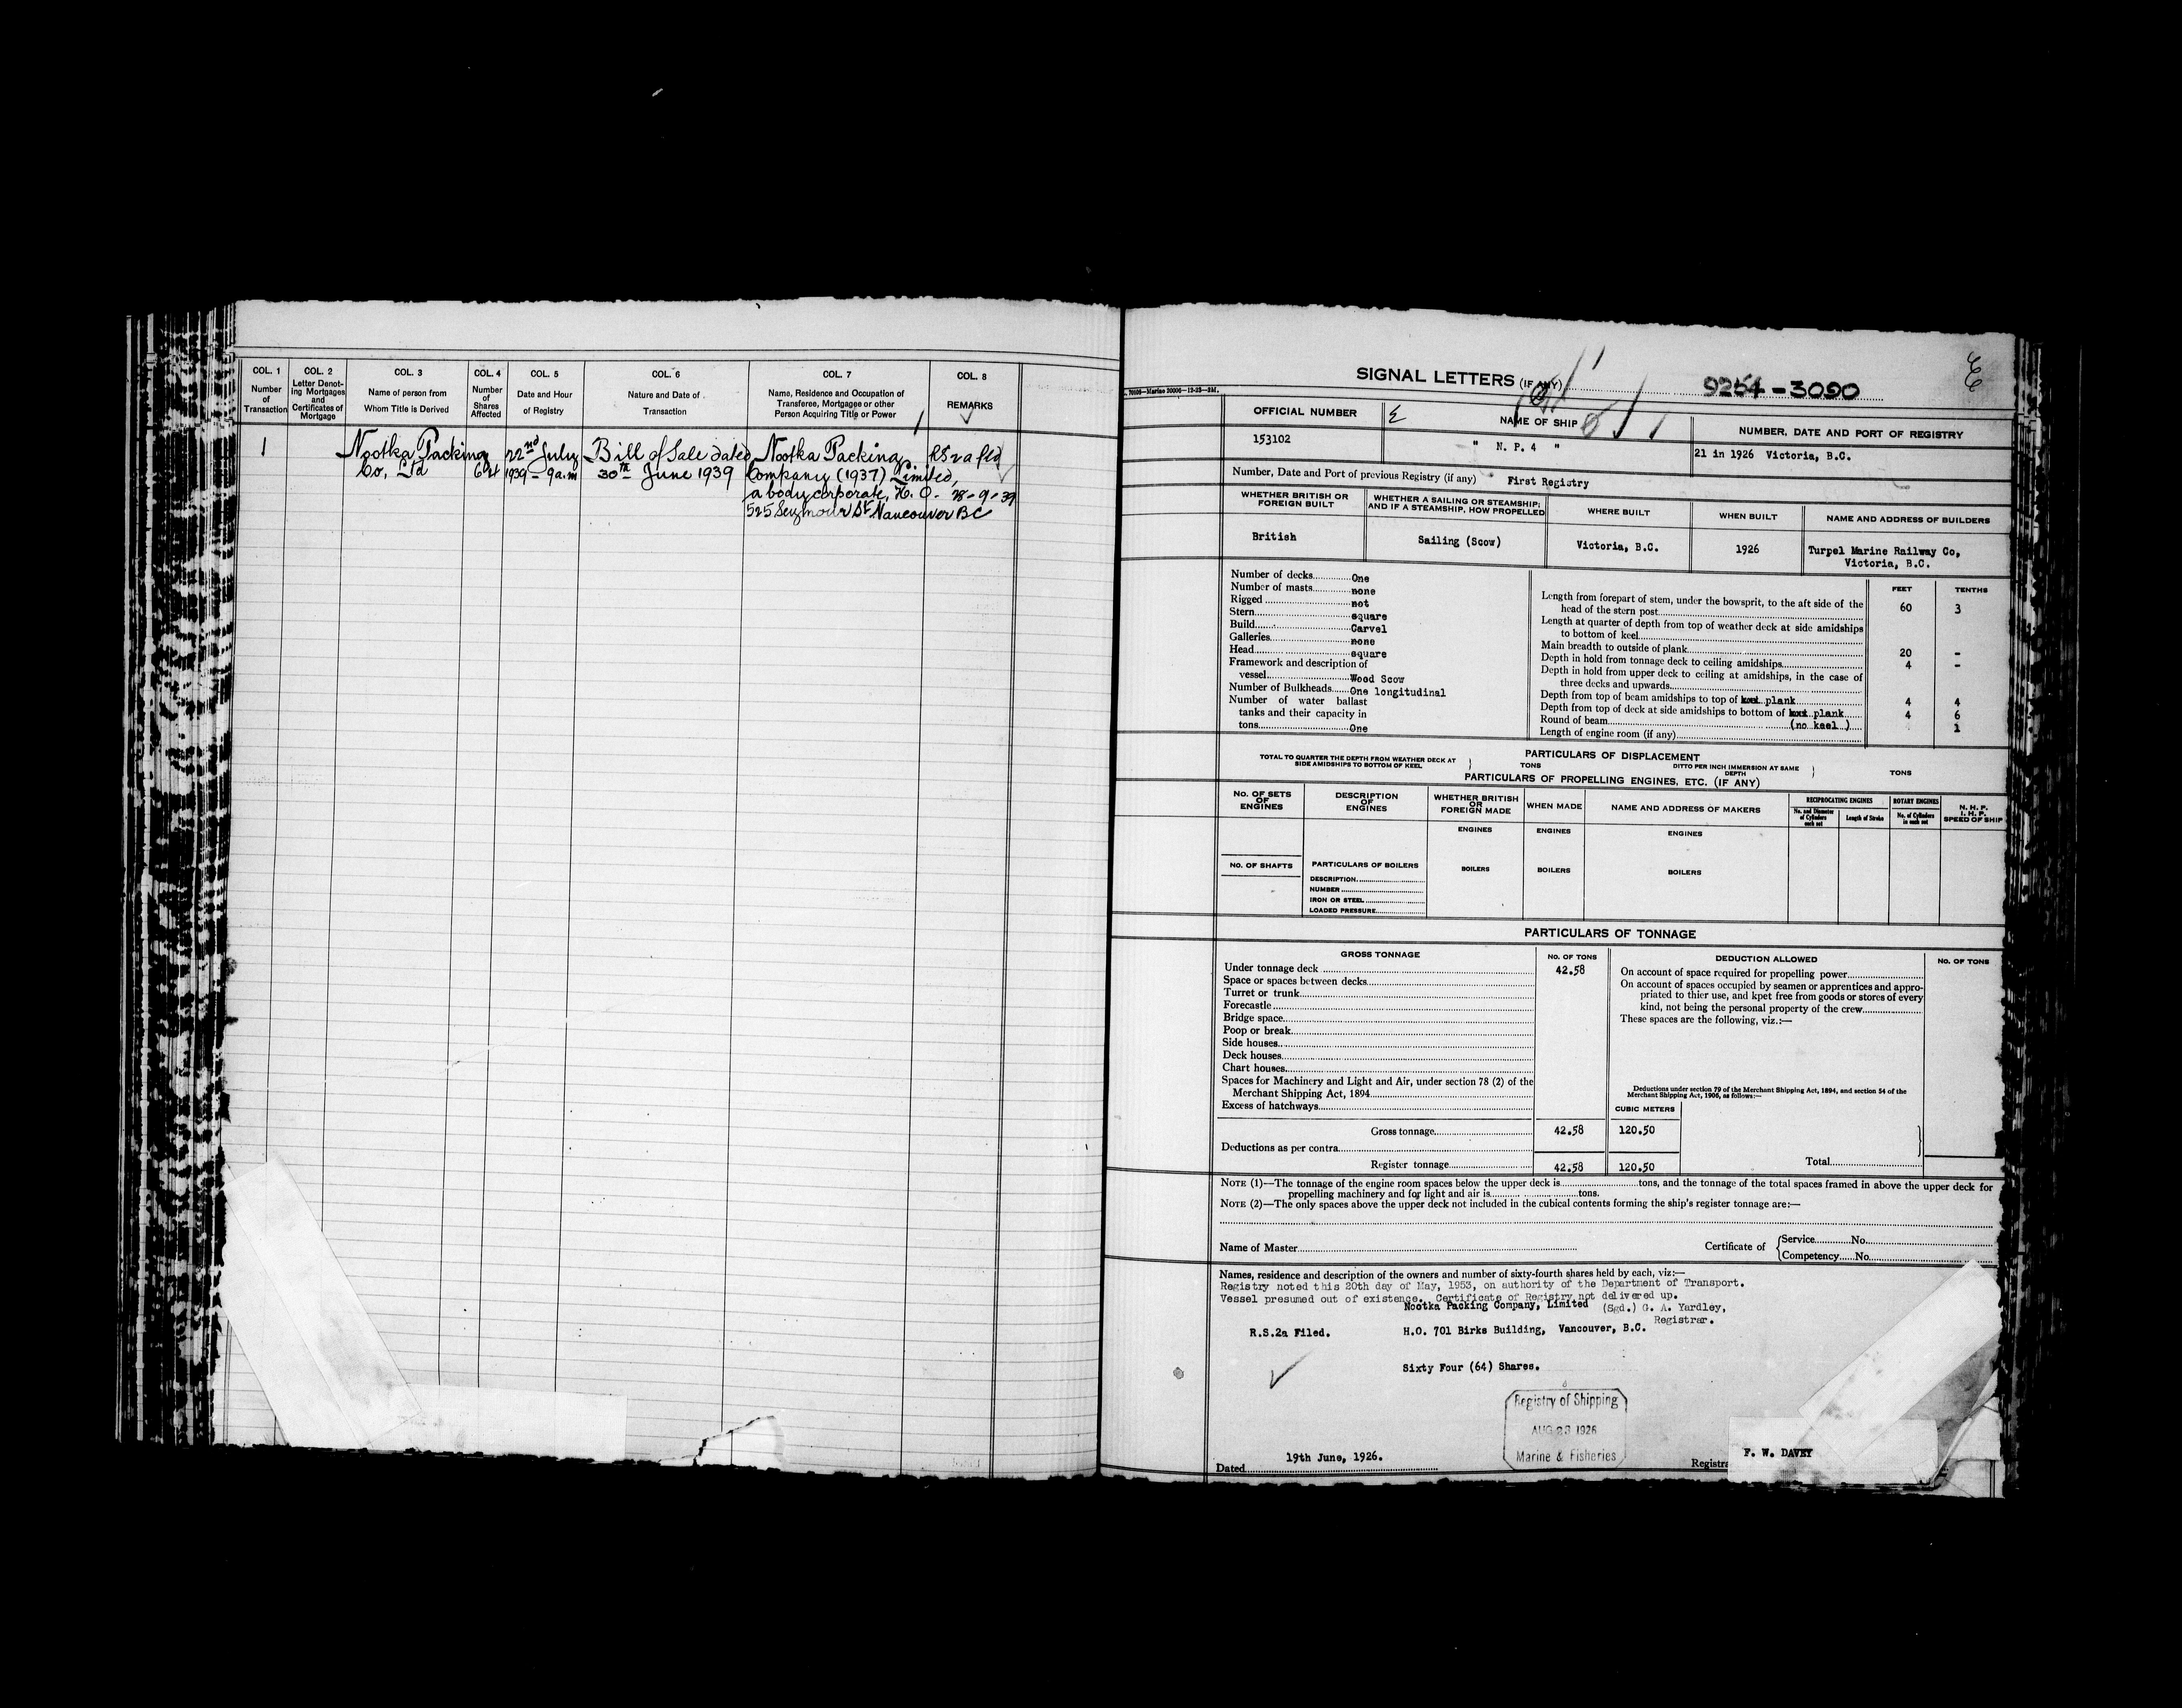 COL. 1 COL. 2 COL. 3 COL. 4 COL. 5 COL. 6 COL. 7 COL. 8
Number of Transaction
Letter Denoting Mortgages and Certificates of Mortgage
Name of person from Whom Title is Derived
Number of Shares Affected
Date and Hour of Registry
Nature and Date of Transaction
Name, Residence and Occupation of Transferee, Mortgagee or other Person Acquiring Title or Power
REMARKS
1 Nootka Packing 22nd July Bill of Sale dated Nootka Packing RS 2a fld
Co. Ltd 64 1939 - 9 a.m 30th June 1939 Company (1937) Limited,
a body corporate, H. O. 28-9-39
525 Seymour St Vancouver BC
70106—Marine 30006—12-25—2M.
SIGNAL LETTERS (IF ANY) 9254-3090
OFFICIAL NUMBER NAME OF SHIP NUMBER, DATE AND PORT OF REGISTRY
153102 " N. P. 4 " 21 in 1926 Victoria, B.C.
Number, Date and Port of previous Registry (if any) First Registry
WHETHER BRITISH OR FOREIGN BUILT
WHETHER A SAILING OR STEAMSHIP; AND IF A STEAMSHIP, HOW PROPELLED
WHERE BUILT
WHEN BUILT
NAME AND ADDRESS OF BUILDERS
British Sailing (Scow) Victoria, B.C. 1926 Turpel Marine Railway Co,
Victoria, B.C.
Number of decks One
Number of masts none
Rigged not
Stern square
Build Carvel
Galleries none
Head square
Framework and description of
vessel Wood Scow
Number of Bulkheads One longitudinal
Number of water ballast
tanks and their capacity in
tons One
FEET TENTHS
Length from forepart of stem, under the bowsprit, to the aft side of the
head of the stern post 60 3
Length at quarter of depth from top of weather deck at side amidships
to bottom of keel
Main breadth to outside of plank 20 -
Depth in hold from tonnage deck to ceiling amidships 4 -
Depth in hold from upper deck to ceiling at amidships, in the case of
three decks and upwards
Depth from top of beam amidships to top of plank 4 4
Depth from top of deck at side amidships to bottom of plank 4 6
Round of beam (no keel) 1
Length of engine room (if any)
PARTICULARS OF DISPLACEMENT
TOTAL TO QUARTER THE DEPTH FROM WEATHER DECK AT SIDE AMIDSHIPS TO BOTTOM OF KEEL } TONS DITTO PER INCH IMMERSION AT SAME DEPTH } TONS
PARTICULARS OF PROPELLING ENGINES, ETC. (IF ANY)
No. OF SETS OF ENGINES
DESCRIPTION OF ENGINES
WHETHER BRITISH OR FOREIGN MADE
WHEN MADE
NAME AND ADDRESS OF MAKERS
RECIPROCATING ENGINES
No. and Diameter of Cylinders each set
Length of Stroke
ROTARY ENGINES
No. of Cylinders in each set
N. H. P.
I. H. P.
SPEED OF SHIP
ENGINES ENGINES ENGINES
No. OF SHAFTS PARTICULARS OF BOILERS BOILERS BOILERS BOILERS
DESCRIPTION
NUMBER
IRON OR STEEL
LOADED PRESSURE
PARTICULARS OF TONNAGE
GROSS TONNAGE No. OF TONS DEDUCTION ALLOWED No. OF TONS
Under tonnage deck 42.58
Space or spaces between decks
Turret or trunk
Forecastle
Bridge space
Poop or break
Side houses
Deck houses
Chart houses
Spaces for Machinery and Light and Air, under section 78 (2) of the
Merchant Shipping Act, 1894
Excess of hatchways
On account of space required for propelling power
On account of spaces occupied by seamen or apprentices and appro-
priated to thier use, and kpet free from goods or stores of every
kind, not being the personal property of the crew
These spaces are the following, viz.:—
Deductions under section 79 of the Merchant Shipping Act, 1894, and section 54 of the
Merchant Shipping Act, 1906, as follows:—
CUBIC METERS
Gross tonnage 42.58 120.50
Deductions as per contra
Register tonnage 42.58 120.50 Total
NOTE (1)—The tonnage of the engine room spaces below the upper deck is tons, and the tonnage of the total spaces framed in above the upper deck for
propelling machinery and for light and air is tons.
NOTE (2)—The only spaces above the upper deck not included in the cubical contents forming the ship's register tonnage are:—
Name of Master Certificate of { Service No.
Competency No.
Names, residence and description of the owners and number of sixty-fourth shares held by each, viz:—
Registry noted this 20th day of May, 1953, on authority of the Department of Transport.
Vessel presumed out of existence. Certificate of Registry not delivered up.
Nootka Packing Company, Limited (Sgd.) G. A. Yardley,
Registrar.
R.S.2a Filed. H.O. 701 Birks Building, Vancouver, B.C.
Sixty Four (64) Shares.
Registry of Shipping
AUG 23 1926
Marine & Fisheries
Dated 19th June, 1926. Registra F. W. DAVEY